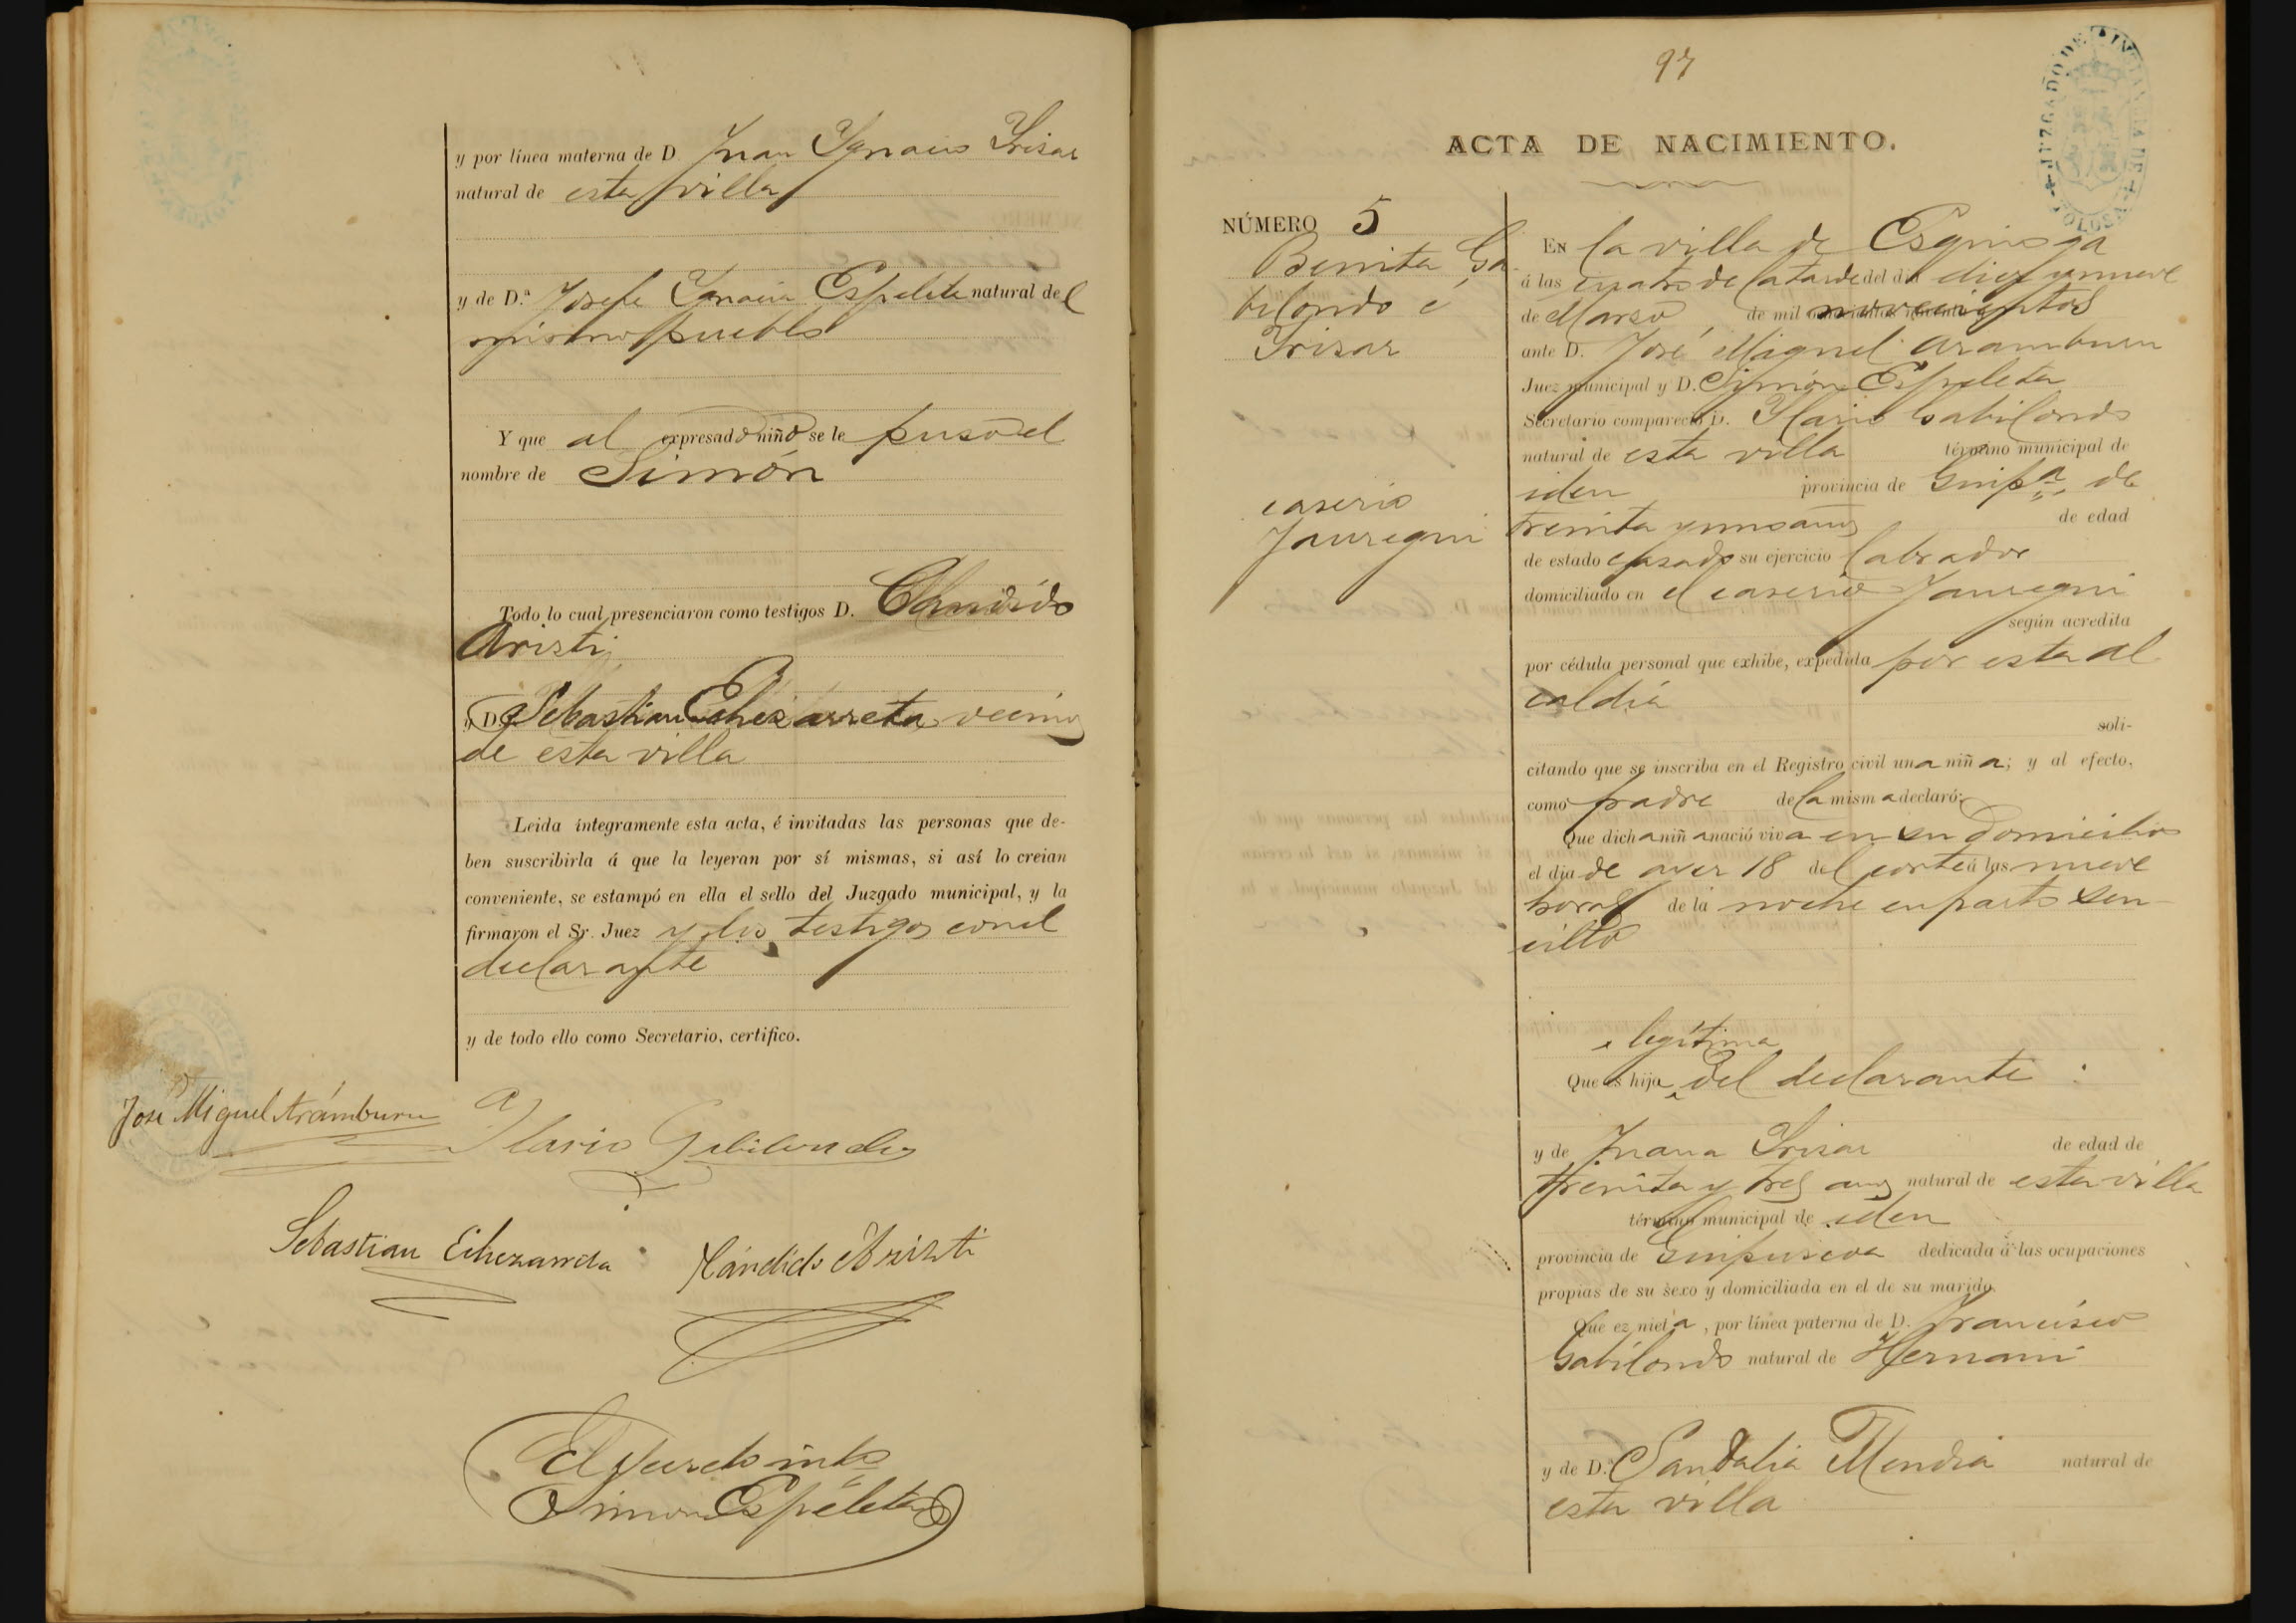 y por línea materna de D. Juan Ygnacio Yrizar
natural de esta villa
y de D.ª Josefa Ygnacia Espeleta natural del
mismo pueblo
Y que al expresado niño se le puso el
nombre de Simón
Todo lo cual presenciaron como testigos D. Cándido
Aristi
y D. Sebastian Echezarreta vecinos
de esta villa
Leida íntegramente esta acta, é invitadas las personas que de-
ben suscribirla á que la leyeran por sí mismas, si así lo creian
conveniente, se estampó en ella el sello del Juzgado municipal, y la
firmaron el Sr. Juez y los testigos con el
declarante
y de todo ello como Secretario, certifico.
José Miguel Arámburu
Ylario Gabilondo
Sebastian Echezarreta Cándido Aristi
El Secreto into
Simon Espeleta
97
ACTA DE NACIMIENTO.
JUZGADO DE INSTANCIA DE TOLOSA
NÚMERO 5
Benita Ga-
bilondo é
Yrizar
caserio
Jauregui
En la villa de Esquioga
á las cuatro de la tarde del dia diez y nueve
de Marzo de mil novecientos
ante D. José Miguel Aramburu
Juez municipal y D. Simón Espeleta
Secretario compareció D. Ylario Gabilondo
natural de esta villa término municipal de
iden provincia de Guipª de
treinta y un años de edad
de estado casado su ejercicio labrador
domiciliado en el caserio Jauregui
según acredita
por cédula personal que exhibe, expedida por esta al
caldia
soli-
citando que se inscriba en el Registro civil una niña; y al efecto,
como padre de la misma declaró:
Que dicha niña nació viva en su domicilio
el dia de ayer 18 del corte á las nueve
horas de la noche en parto sen-
cillo
legítima
Que es hija del declarante
y de Juana Yrizar de edad de
treinta y tres años natural de esta villa
término municipal de iden
provincia de Guipuzcoa dedicada á las ocupaciones
propias de su sexo y domiciliada en el de su marido.
Que ez nieta, por línea paterna de D. Francisco
Gabilondo natural de Hernani
y de D.ª Sandalia Mendia natural de
esta villa